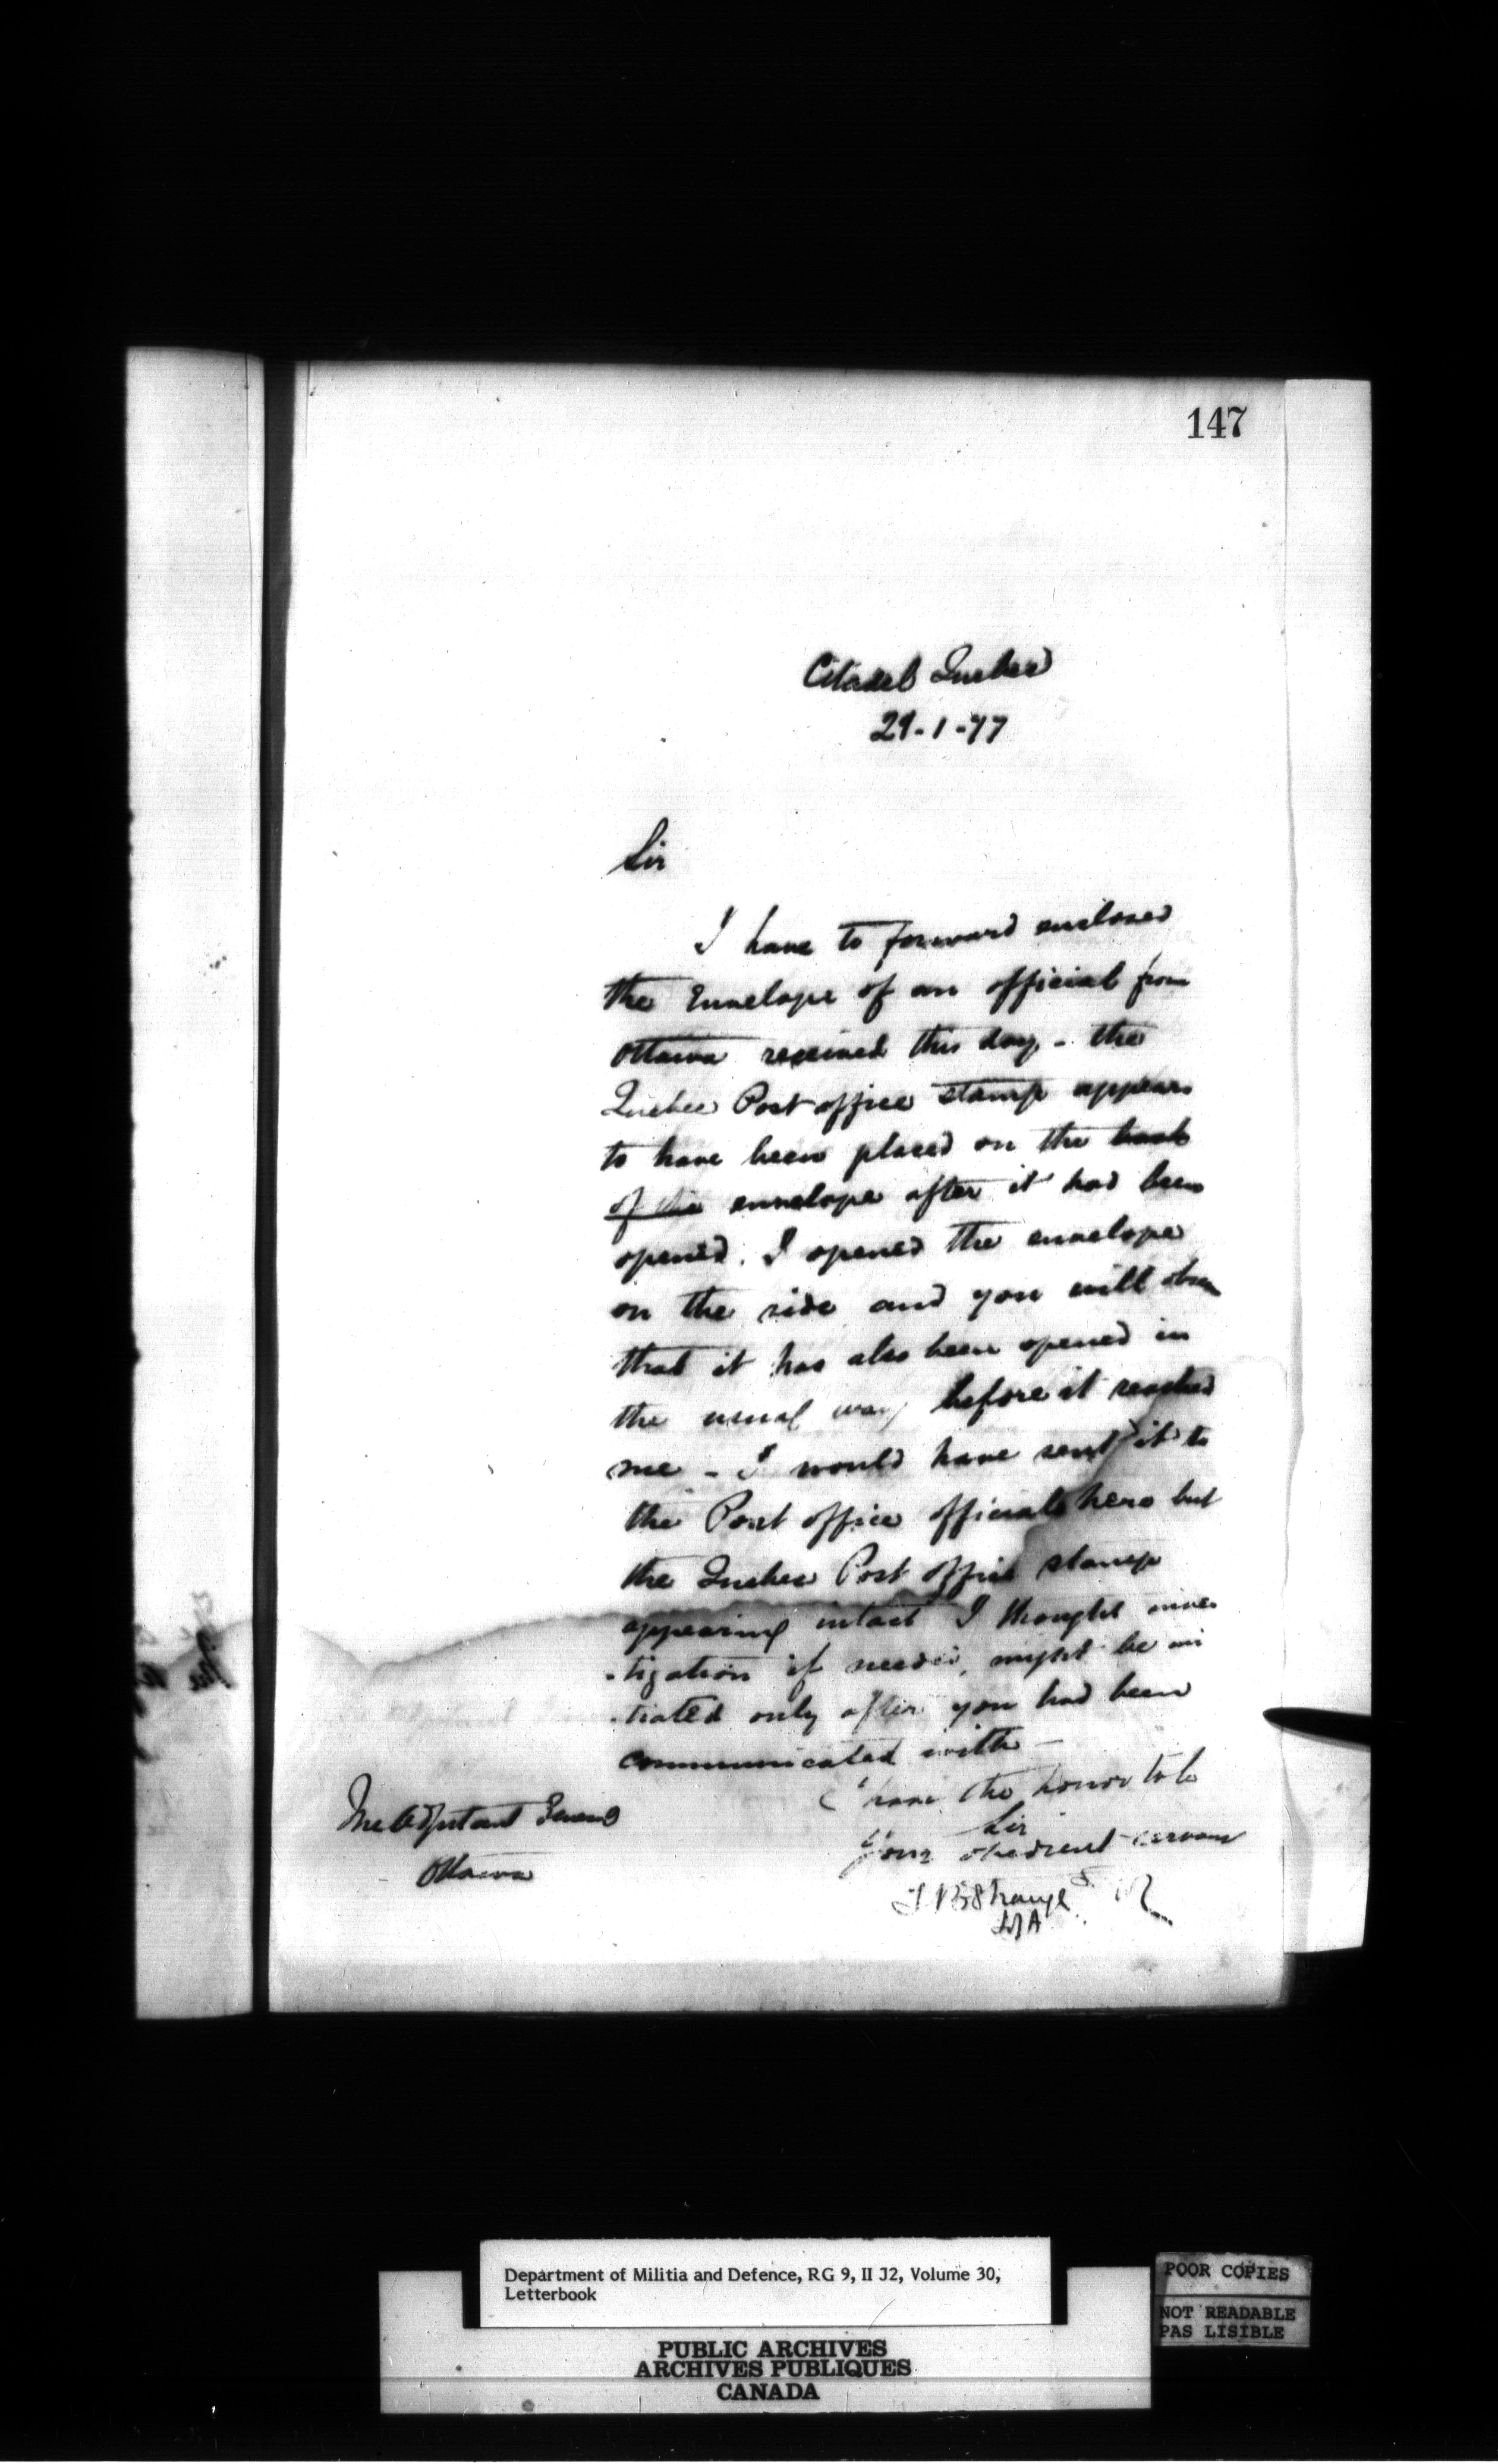 147
Citadel Quebec
29-1-77
Sir
I have to forward enclosed
the Envelope of an official from
Ottawa received this day - the
Quebec Post office stamp appears
to have been placed on the back
of the envelope after it had been
opened. I opened the envelope
on the side and you will observe
that it has also been opened in
the usual way before it reached
me - I would have sent it to
the Post office officials here but
the Quebec Post office stamp
appearing intact I thought inves
-tigation if needed, might be ini
-tiated only after you had been
communicated with -
I have the honor to be
Sir
Your obedient servant
The Adjutant General
Ottawa
T B Strange
Department of Militia and Defence, RG 9, II J2, Volume 30,
Letterbook
PUBLIC ARCHIVES
ARCHIVES PUBLIQUES
CANADA
POOR COPIES
NOT READABLE
PAS LISIBLE